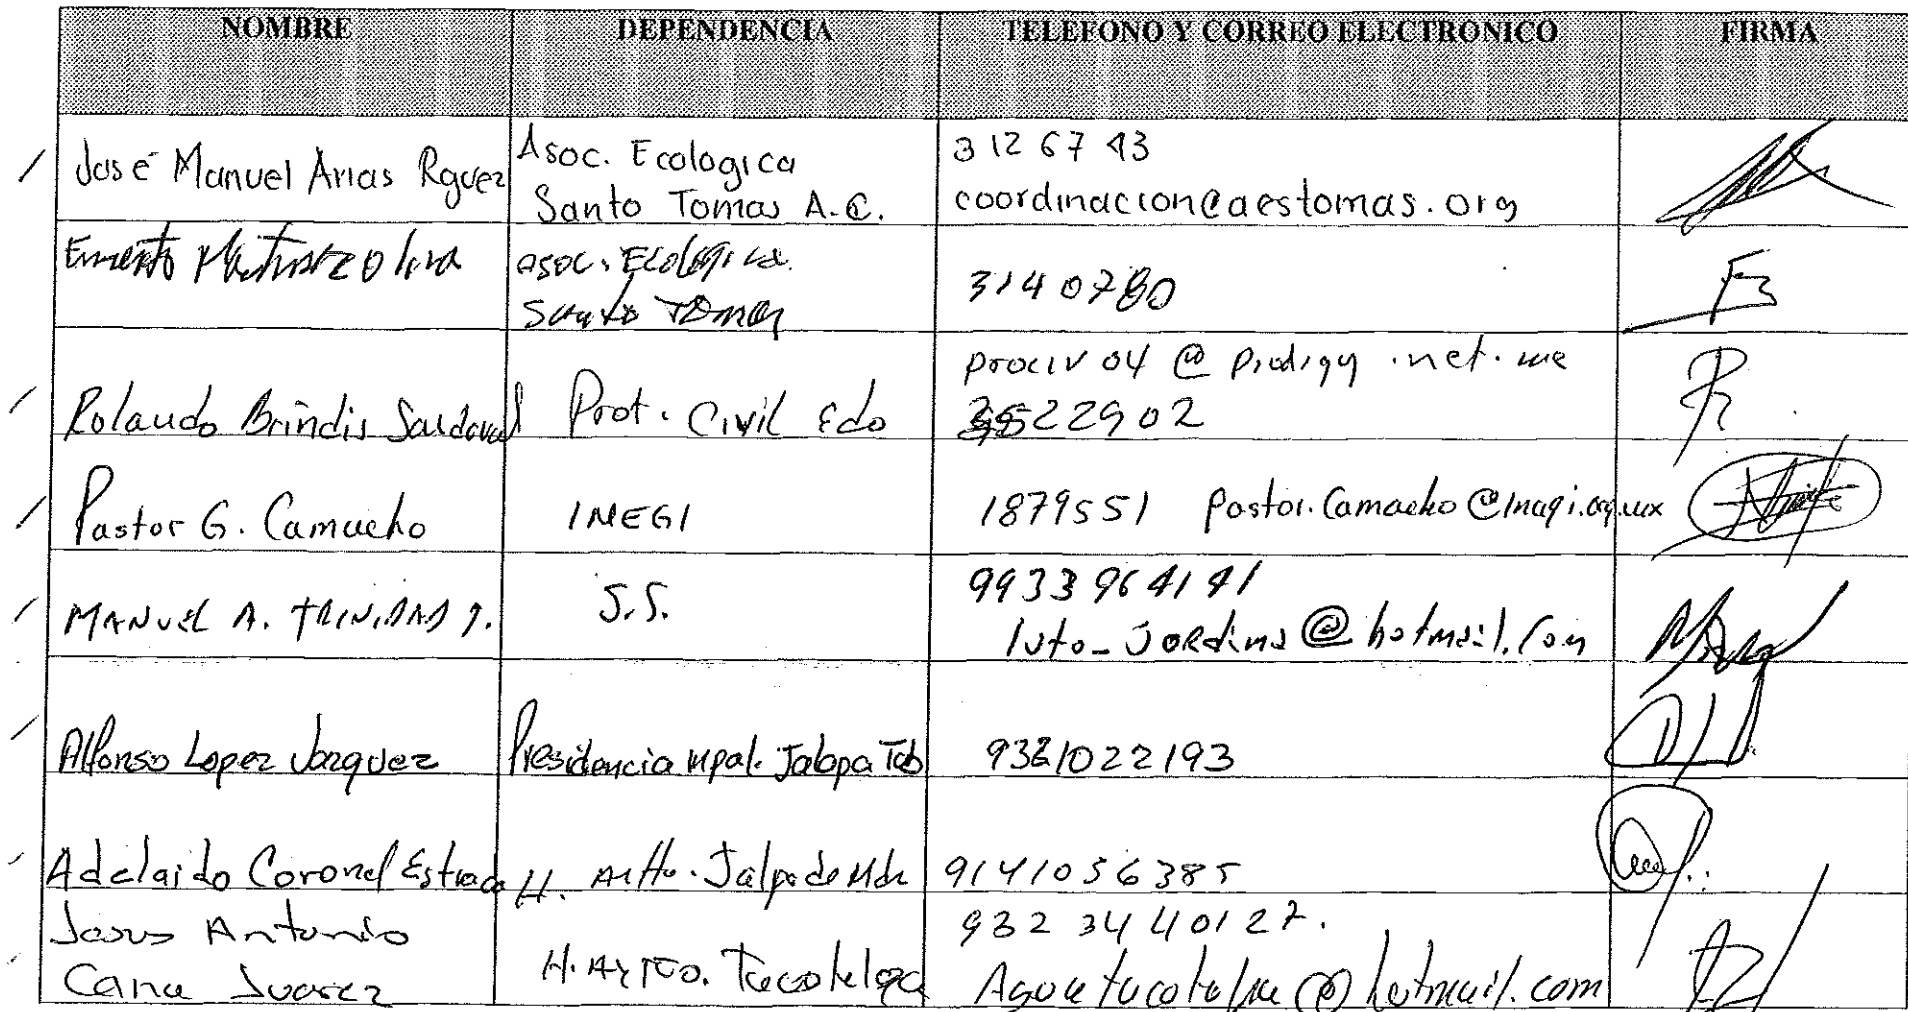 NOMBRE DEPENDENCIA TELEFONO Y CORREO ELECTRONICO FIRMA
José Manuel Arias Rguez
Asoc. Ecologica
Santo Tomas A.C.
312 67 43
coordinacion@aestomas.org
Ernesto Martinez Oliva
asoc. Ecológica
Santo Tomas
3140780
Rolando Brindis Sandoval
Prot. Civil Edo
prociv04@prodigy.net.mx
3522902
Pastor G. Camacho
INEGI
1879551 Pastor.Camacho@inegi.org.mx
MANUEL A. TRINIDAD J.
S.S.
9933964141
@hotmail.com
Alfonso Lopez Vazquez
Presidencia Mpal. Jalapa Tab
9321022193
Adelaido Coronel Estrada
H. Aytto. Jalpa de Mdz
9141056385
Jesus Antonio
Cana Juarez
H. AYTTO. Tacotalpa
932 34 40127.
@hotmail.com